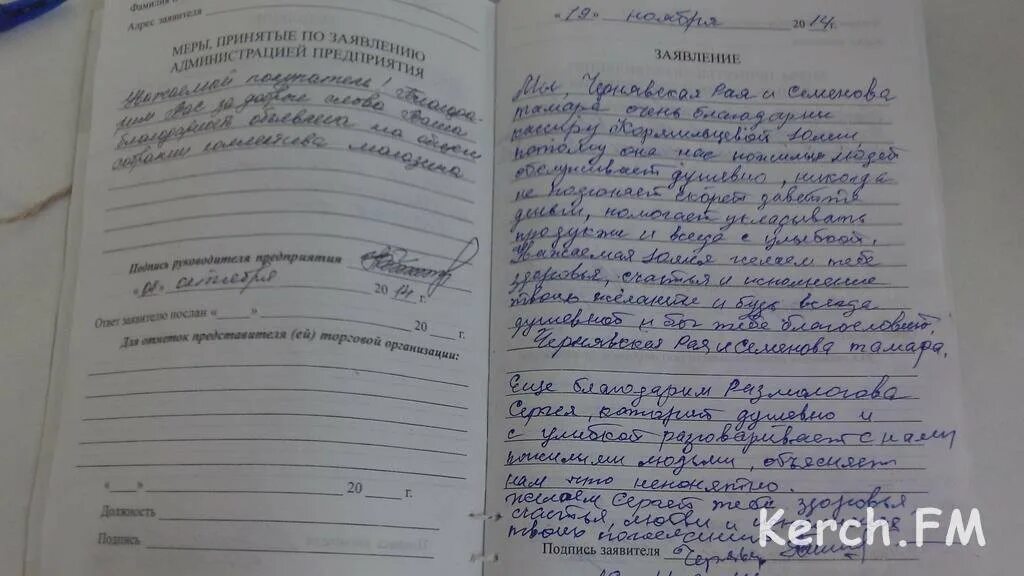 Фамилия
Адрес заявителя
МЕРЫ, ПРИНЯТЫЕ ПО ЗАЯВЛЕНИЮ
АДМИНИСТРАЦИЕЙ ПРЕДПРИЯТИЯ
покупатели! Благода-
рим Вас за добрые слова Ваша
благодарность объявлена на общем
собрании коллектива магазина
Подпись руководителя предприятия
сентября 2014 г.
Ответ заявителю послан «____» 20 г.
Для отметок представителя (ей) торговой организации:
«___» 20 г.
Должность
Подпись
«19» ноября 2014г.
ЗАЯВЛЕНИЕ
Мы, Чернявская Рая и Семенова
тамара очень благодарны
кассиру Кормильцевой Юлии
потому она нас пожилых людей
обслуживает душевно, никогда
не подгоняет скорей
деньги, помогает укладывать
продукты и всегда с улыбкой.
Уважаемая Юлия желаем тебе
здоровья, счастья и исполнение
твоих желаний и будь всегда
душевной и бог тебе благословит.
Чернявская Рая и Семенова тамара.
Еще благодарим Размологова
Сергея, который душевно и
с улыбкой разговаривает с нами
пожилыми людьми, объясняет
нам что непонятно.
желаем Сергей тебе здоровья
счастья, любви и
твоих
Подпись заявителя
Kerch.FM